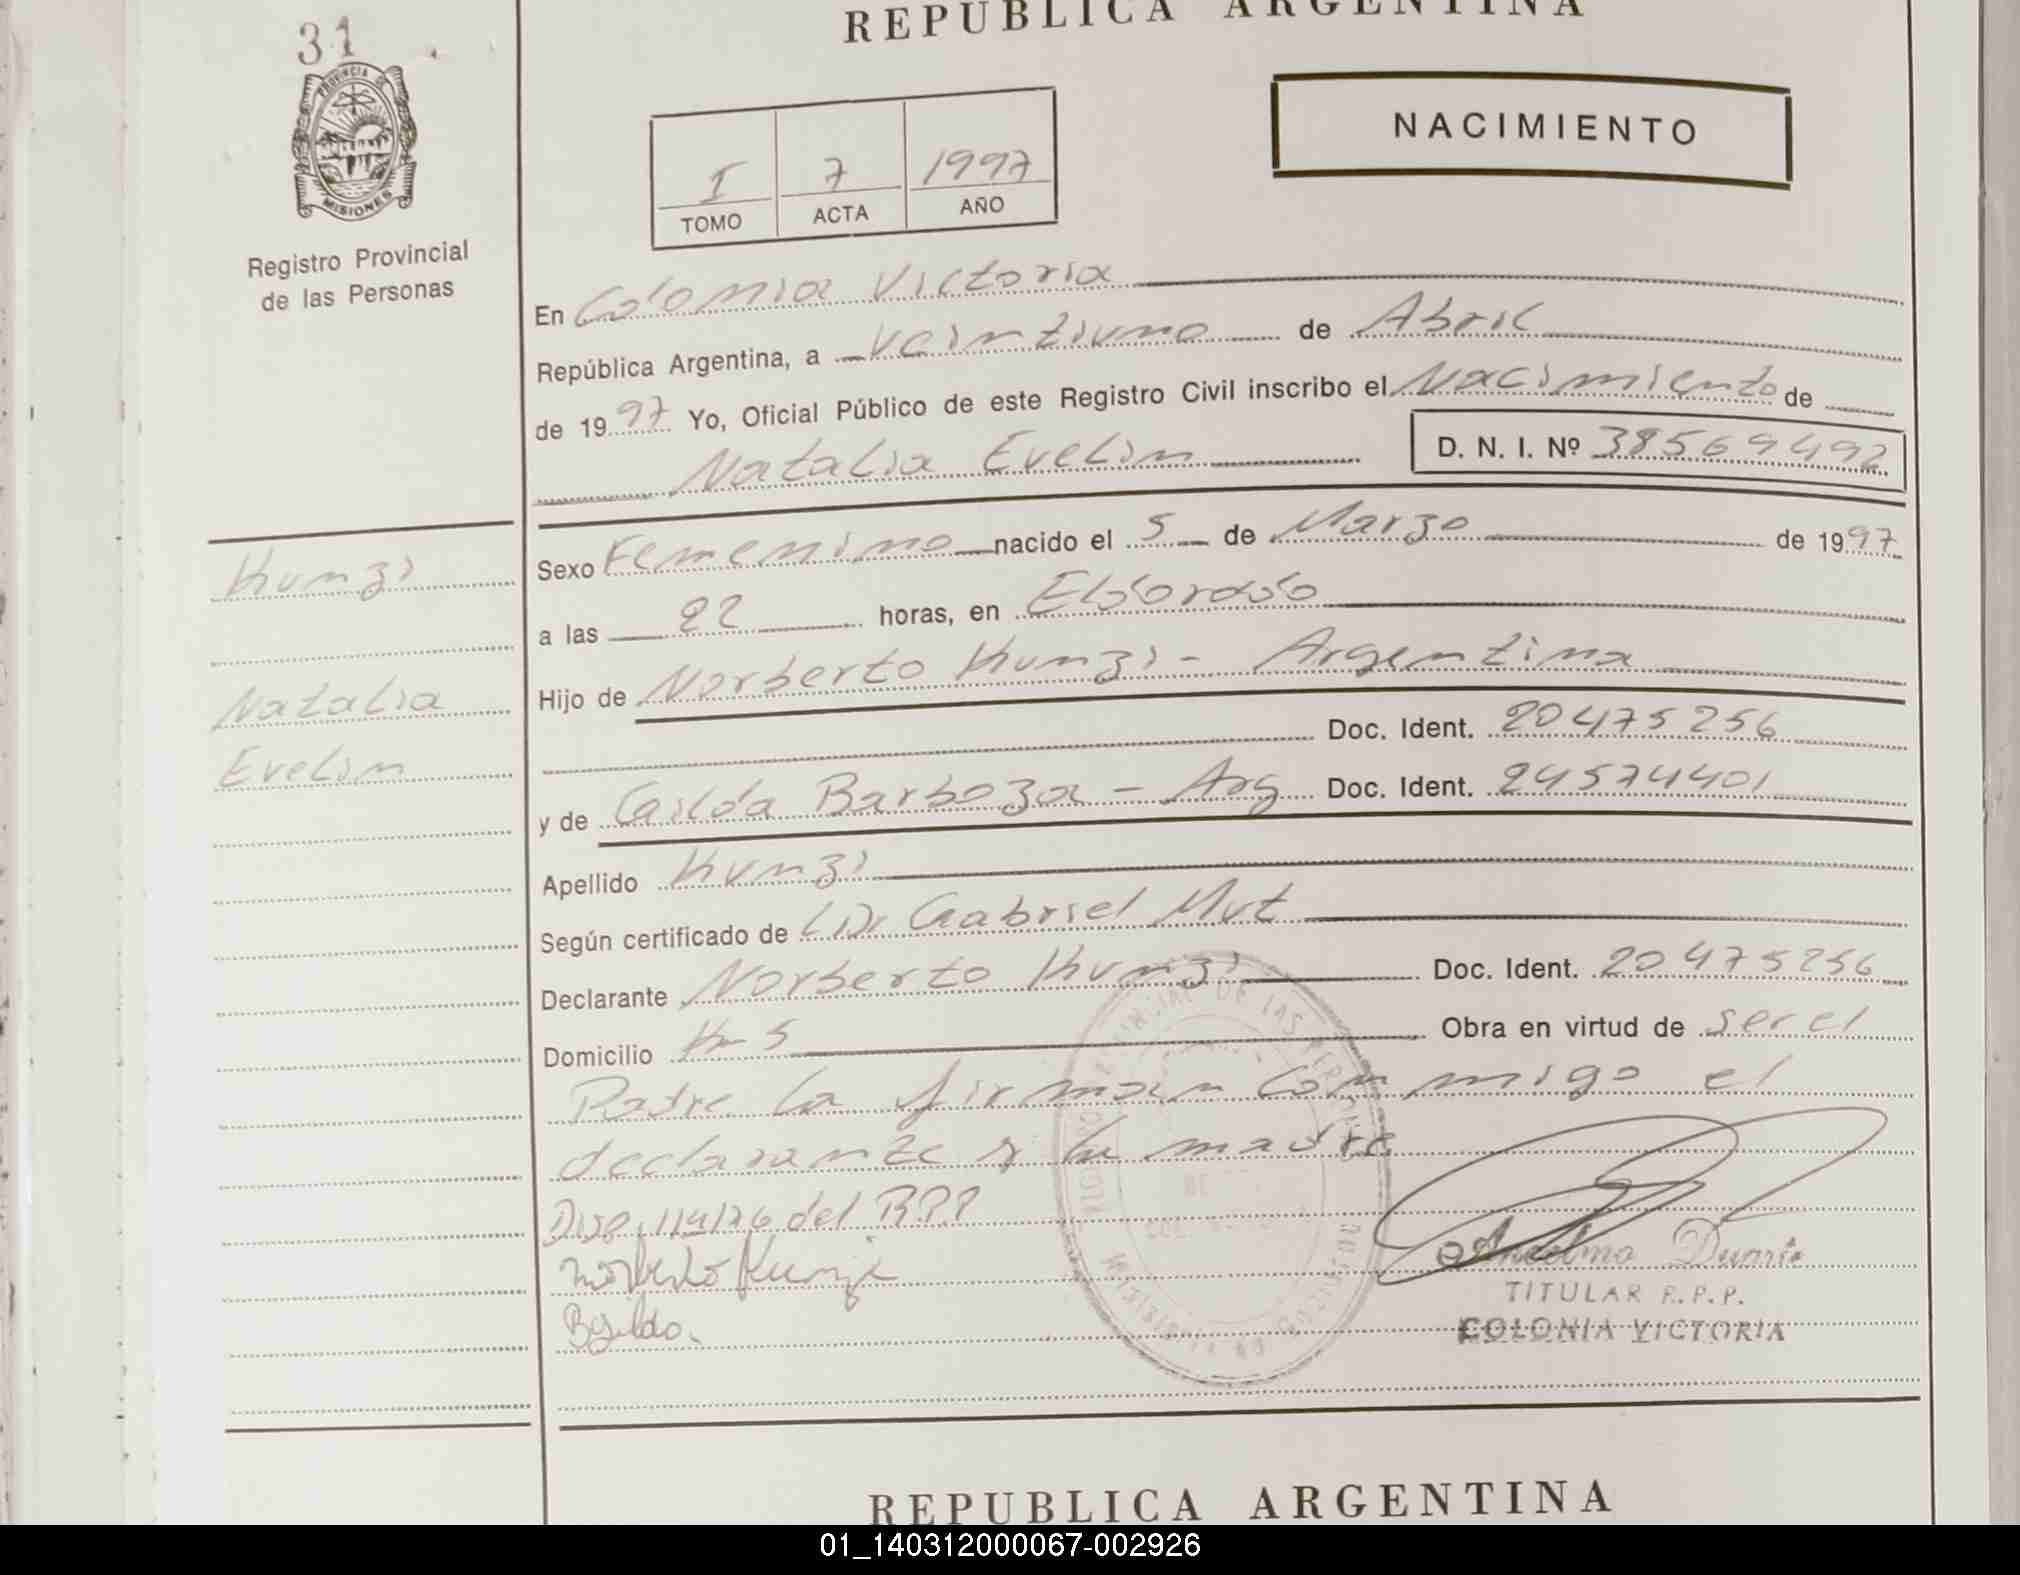 REPUBLICA ARGENTINA
31
PROVINCIA DE
MISIONES
Registro Provincial
de las Personas
I 7 1997
TOMO ACTA AÑO
NACIMIENTO
En Colonia Victoria
República Argentina, a veintiuno de Abril
de 1997 Yo, Oficial Público de este Registro Civil inscribo el Nacimiento de
Natalia Evelin D. N. I. Nº 38569492
Kunzi
Natalia
Evelin
Sexo Femenino nacido el 5 de Marzo de 1997
a las 22 horas, en Eldorado
Hijo de Norberto Kunzi - Argentina
Doc. Ident. 20475256
y de Gilda Barboza - Arg Doc. Ident. 24574401
Apellido Kunzi
Según certificado de Dr Gabriel Mut
Declarante Norberto Kunzi Doc. Ident. 20475256
Domicilio Km 5 Obra en virtud de ser el
Padre La firman conmigo el
declarante y la madre
Disp. 114/76 del R.P.P
Norberto Kunzi
Anselmo Duarte
TITULAR R.P.P.
COLONIA VICTORIA
REPUBLICA ARGENTINA
01_140312000067-002926